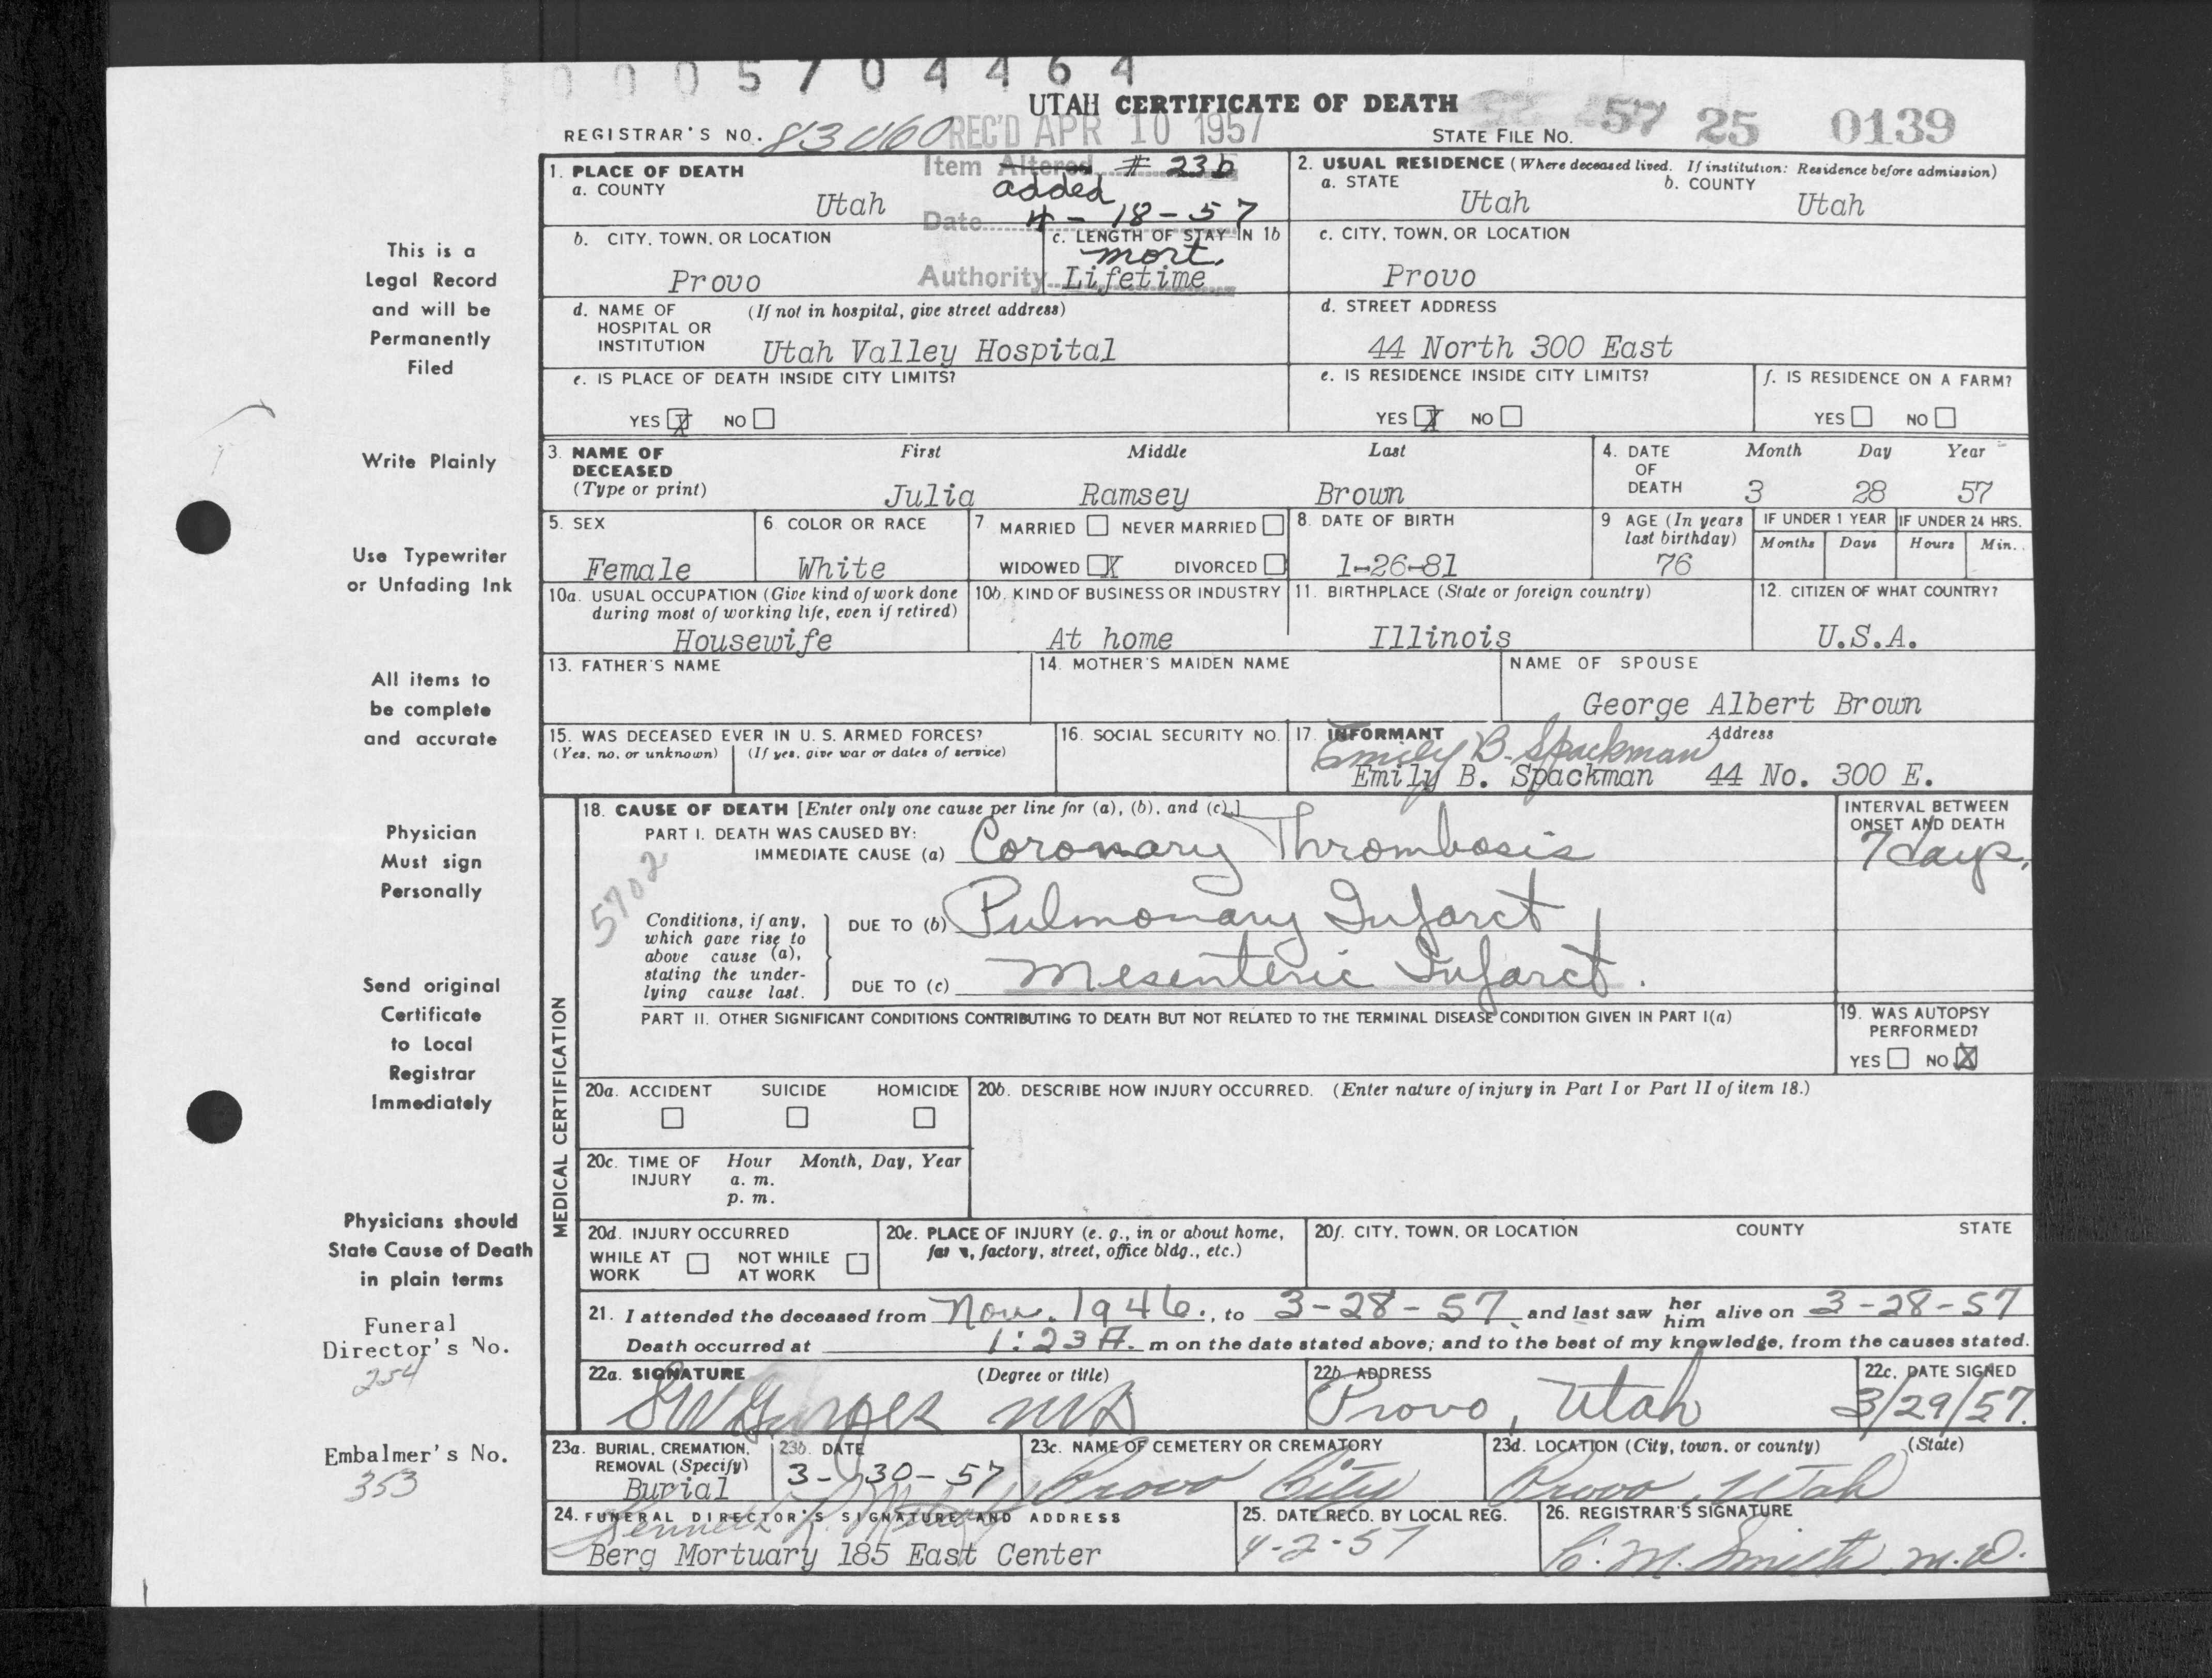 0005704464
UTAH CERTIFICATE OF DEATH
REGISTRAR'S NO. REC'D APR 10 1957 STATE FILE NO. 57 25 0139
Item Altered # 23b
added
Date 4-18-57
Authority mort.
1. PLACE OF DEATH
a. COUNTY Utah
2. USUAL RESIDENCE (Where deceased lived. If institution: Residence before admission)
a. STATE Utah b. COUNTY Utah
b. CITY, TOWN, OR LOCATION Provo
c. LENGTH OF STAY IN 1b Lifetime
c. CITY, TOWN, OR LOCATION Provo
d. NAME OF HOSPITAL OR INSTITUTION (If not in hospital, give street address) Utah Valley Hospital
d. STREET ADDRESS 44 North 300 East
e. IS PLACE OF DEATH INSIDE CITY LIMITS? YES X NO
e. IS RESIDENCE INSIDE CITY LIMITS? YES X NO
f. IS RESIDENCE ON A FARM? YES NO
3. NAME OF DECEASED (Type or print) First Middle Last
Julia Ramsey Brown
4. DATE OF DEATH Month Day Year
3 28 57
5. SEX Female
6. COLOR OR RACE White
7. MARRIED NEVER MARRIED
WIDOWED X DIVORCED
8. DATE OF BIRTH 1-26-81
9 AGE (In years last birthday) 76
IF UNDER 1 YEAR Months Days
IF UNDER 24 HRS. Hours Min.
10a. USUAL OCCUPATION (Give kind of work done during most of working life, even if retired) Housewife
10b. KIND OF BUSINESS OR INDUSTRY At home
11. BIRTHPLACE (State or foreign country) Illinois
12. CITIZEN OF WHAT COUNTRY? U.S.A.
13. FATHER'S NAME
14. MOTHER'S MAIDEN NAME
NAME OF SPOUSE George Albert Brown
15. WAS DECEASED EVER IN U. S. ARMED FORCES?
(Yes, no, or unknown) (If yes, give war or dates of service)
16. SOCIAL SECURITY NO.
17. INFORMANT Address
Emily B. Spackman
Emily B. Spackman 44 No. 300 E.
MEDICAL CERTIFICATION
18. CAUSE OF DEATH [Enter only one cause per line for (a), (b), and (c).]
PART I. DEATH WAS CAUSED BY:
IMMEDIATE CAUSE (a) Coronary Thrombosis
INTERVAL BETWEEN ONSET AND DEATH
7 days.
5702
Conditions, if any, which gave rise to above cause (a), stating the underlying cause last.
DUE TO (b) Pulmonary Infarct
DUE TO (c) Mesenteric Infarct.
PART II. OTHER SIGNIFICANT CONDITIONS CONTRIBUTING TO DEATH BUT NOT RELATED TO THE TERMINAL DISEASE CONDITION GIVEN IN PART I(a)
19. WAS AUTOPSY PERFORMED?
YES NO X
20a. ACCIDENT SUICIDE HOMICIDE
20b. DESCRIBE HOW INJURY OCCURRED. (Enter nature of injury in Part I or Part II of item 18.)
20c. TIME OF INJURY Hour Month, Day, Year
a. m.
p. m.
20d. INJURY OCCURRED
WHILE AT WORK NOT WHILE AT WORK
20e. PLACE OF INJURY (e. g., in or about home, farm, factory, street, office bldg., etc.)
20f. CITY, TOWN, OR LOCATION COUNTY STATE
21. I attended the deceased from Nov. 1946., to 3-28-57 and last saw her him alive on 3-28-57
Death occurred at 1:23 A. m on the date stated above; and to the best of my knowledge, from the causes stated.
22a. SIGNATURE (Degree or title)
MD
22b. ADDRESS Provo, Utah
22c. DATE SIGNED 3/29/57.
23a. BURIAL, CREMATION, REMOVAL (Specify) Burial
23b. DATE 3-30-57
23c. NAME OF CEMETERY OR CREMATORY Provo City
23d. LOCATION (City, town, or county) (State) Provo, Utah
24. FUNERAL DIRECTOR'S SIGNATURE AND ADDRESS
Berg Mortuary 185 East Center
25. DATE RECD. BY LOCAL REG. 4-2-57
26. REGISTRAR'S SIGNATURE
C. M. Smith M.D.
This is a
Legal Record
and will be
Permanently
Filed
Write Plainly
Use Typewriter
or Unfading Ink
All items to
be complete
and accurate
Physician
Must sign
Personally
Send original
Certificate
to Local
Registrar
Immediately
Physicians should
State Cause of Death
in plain terms
Funeral
Director's No.
254
Embalmer's No.
353